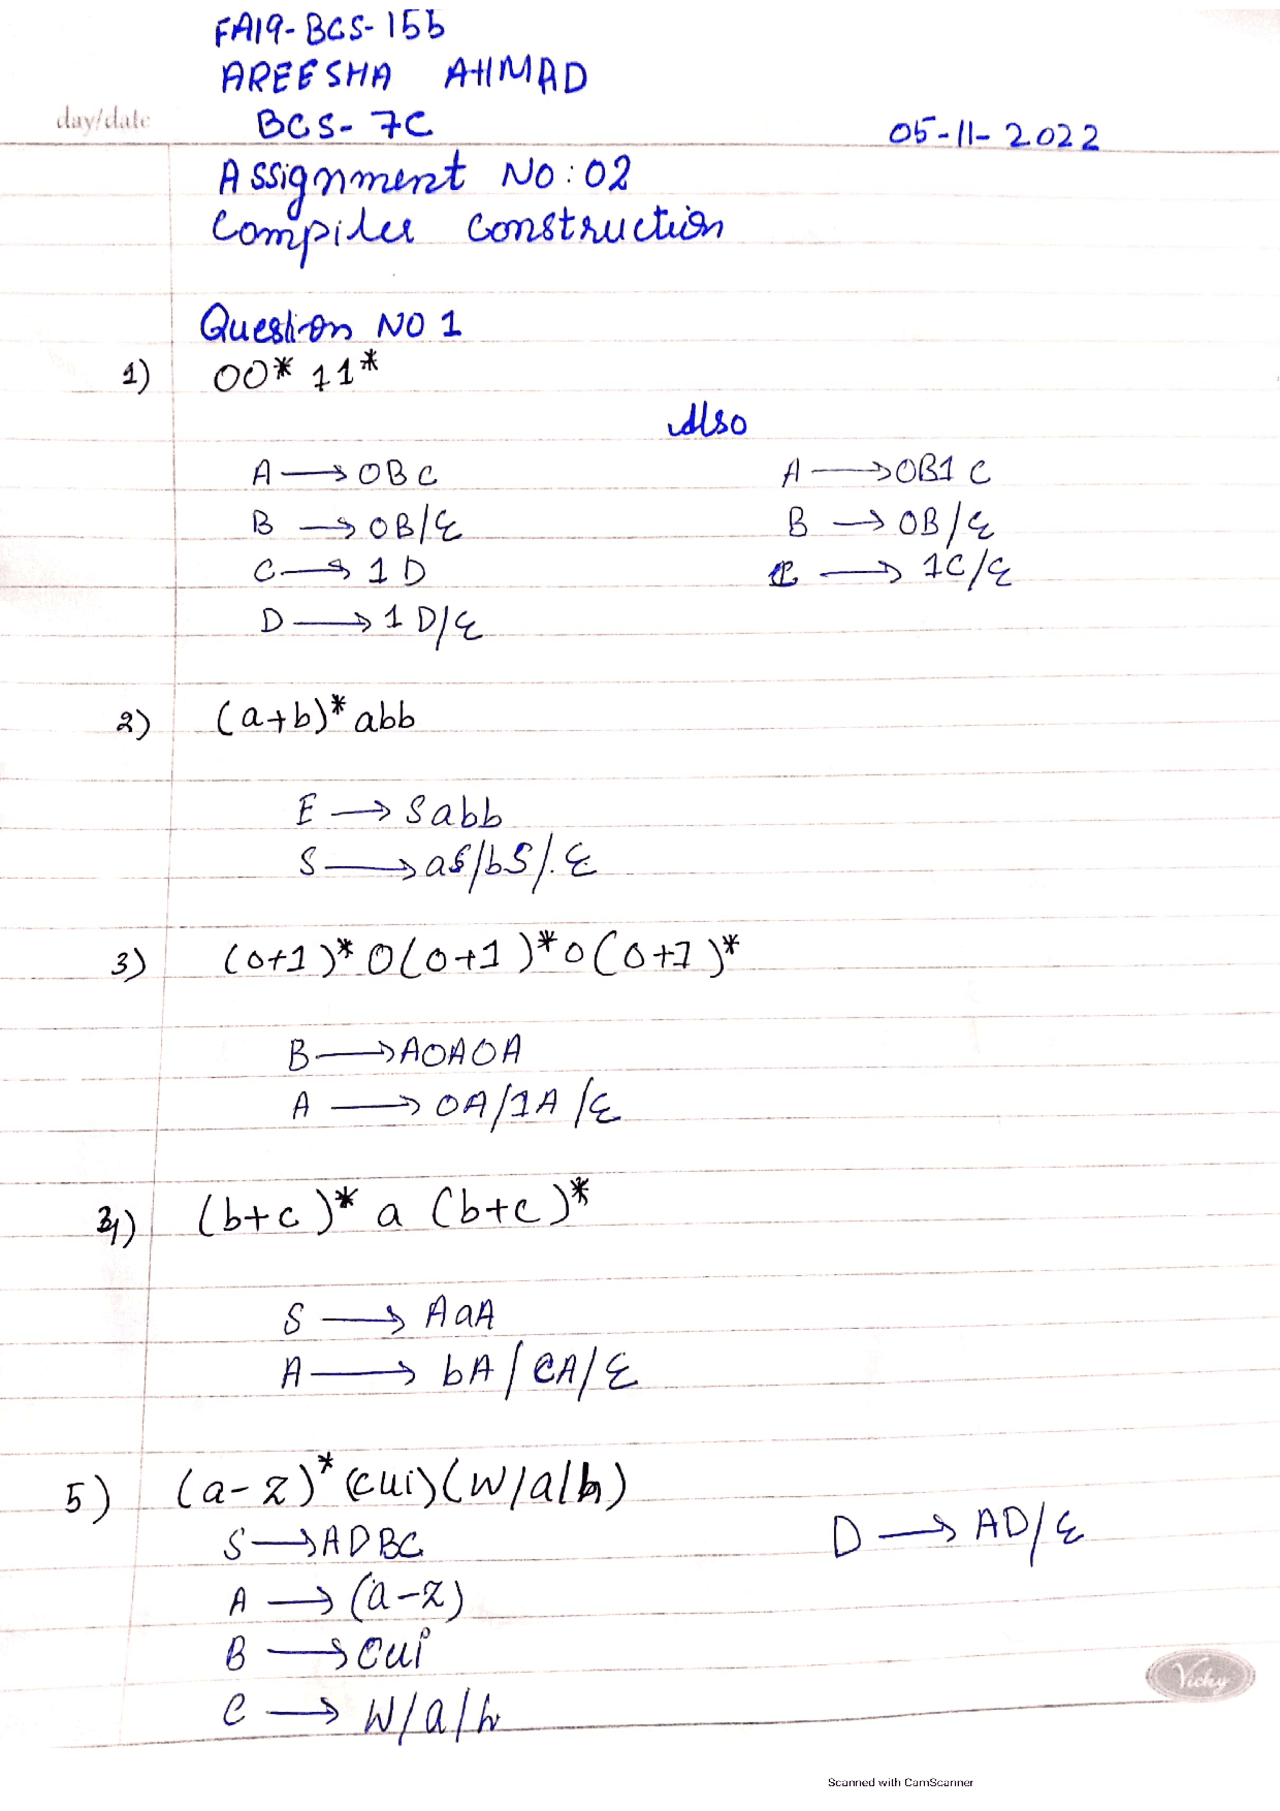 FA19-BCS-155
AREESHA AHMAD
day/date
BCS-7C
05-11-2022
Assignment No:02
Compiler Construction
Question NO 1
1) 00* 11*
Also
A → 0BC
A → 0B1C
B → 0B/ε
B → 0B/ε
C → 1D
C → 1C/ε
D → 1D/ε
2) (a+b)* abb
E → Sabb
S → aS/bS/.ε
3) (0+1)* 0(0+1)*0(0+1)*
B → A0A0A
A → 0A/1A/ε
4) (b+c)* a (b+c)*
S → AaA
A → bA/cA/ε
5) (a-z)* (cui)(w/a/h)
S → ADBC
D → AD/ε
A → (a-z)
B → cui
C → w/a/h
Vicky
Scanned with CamScanner